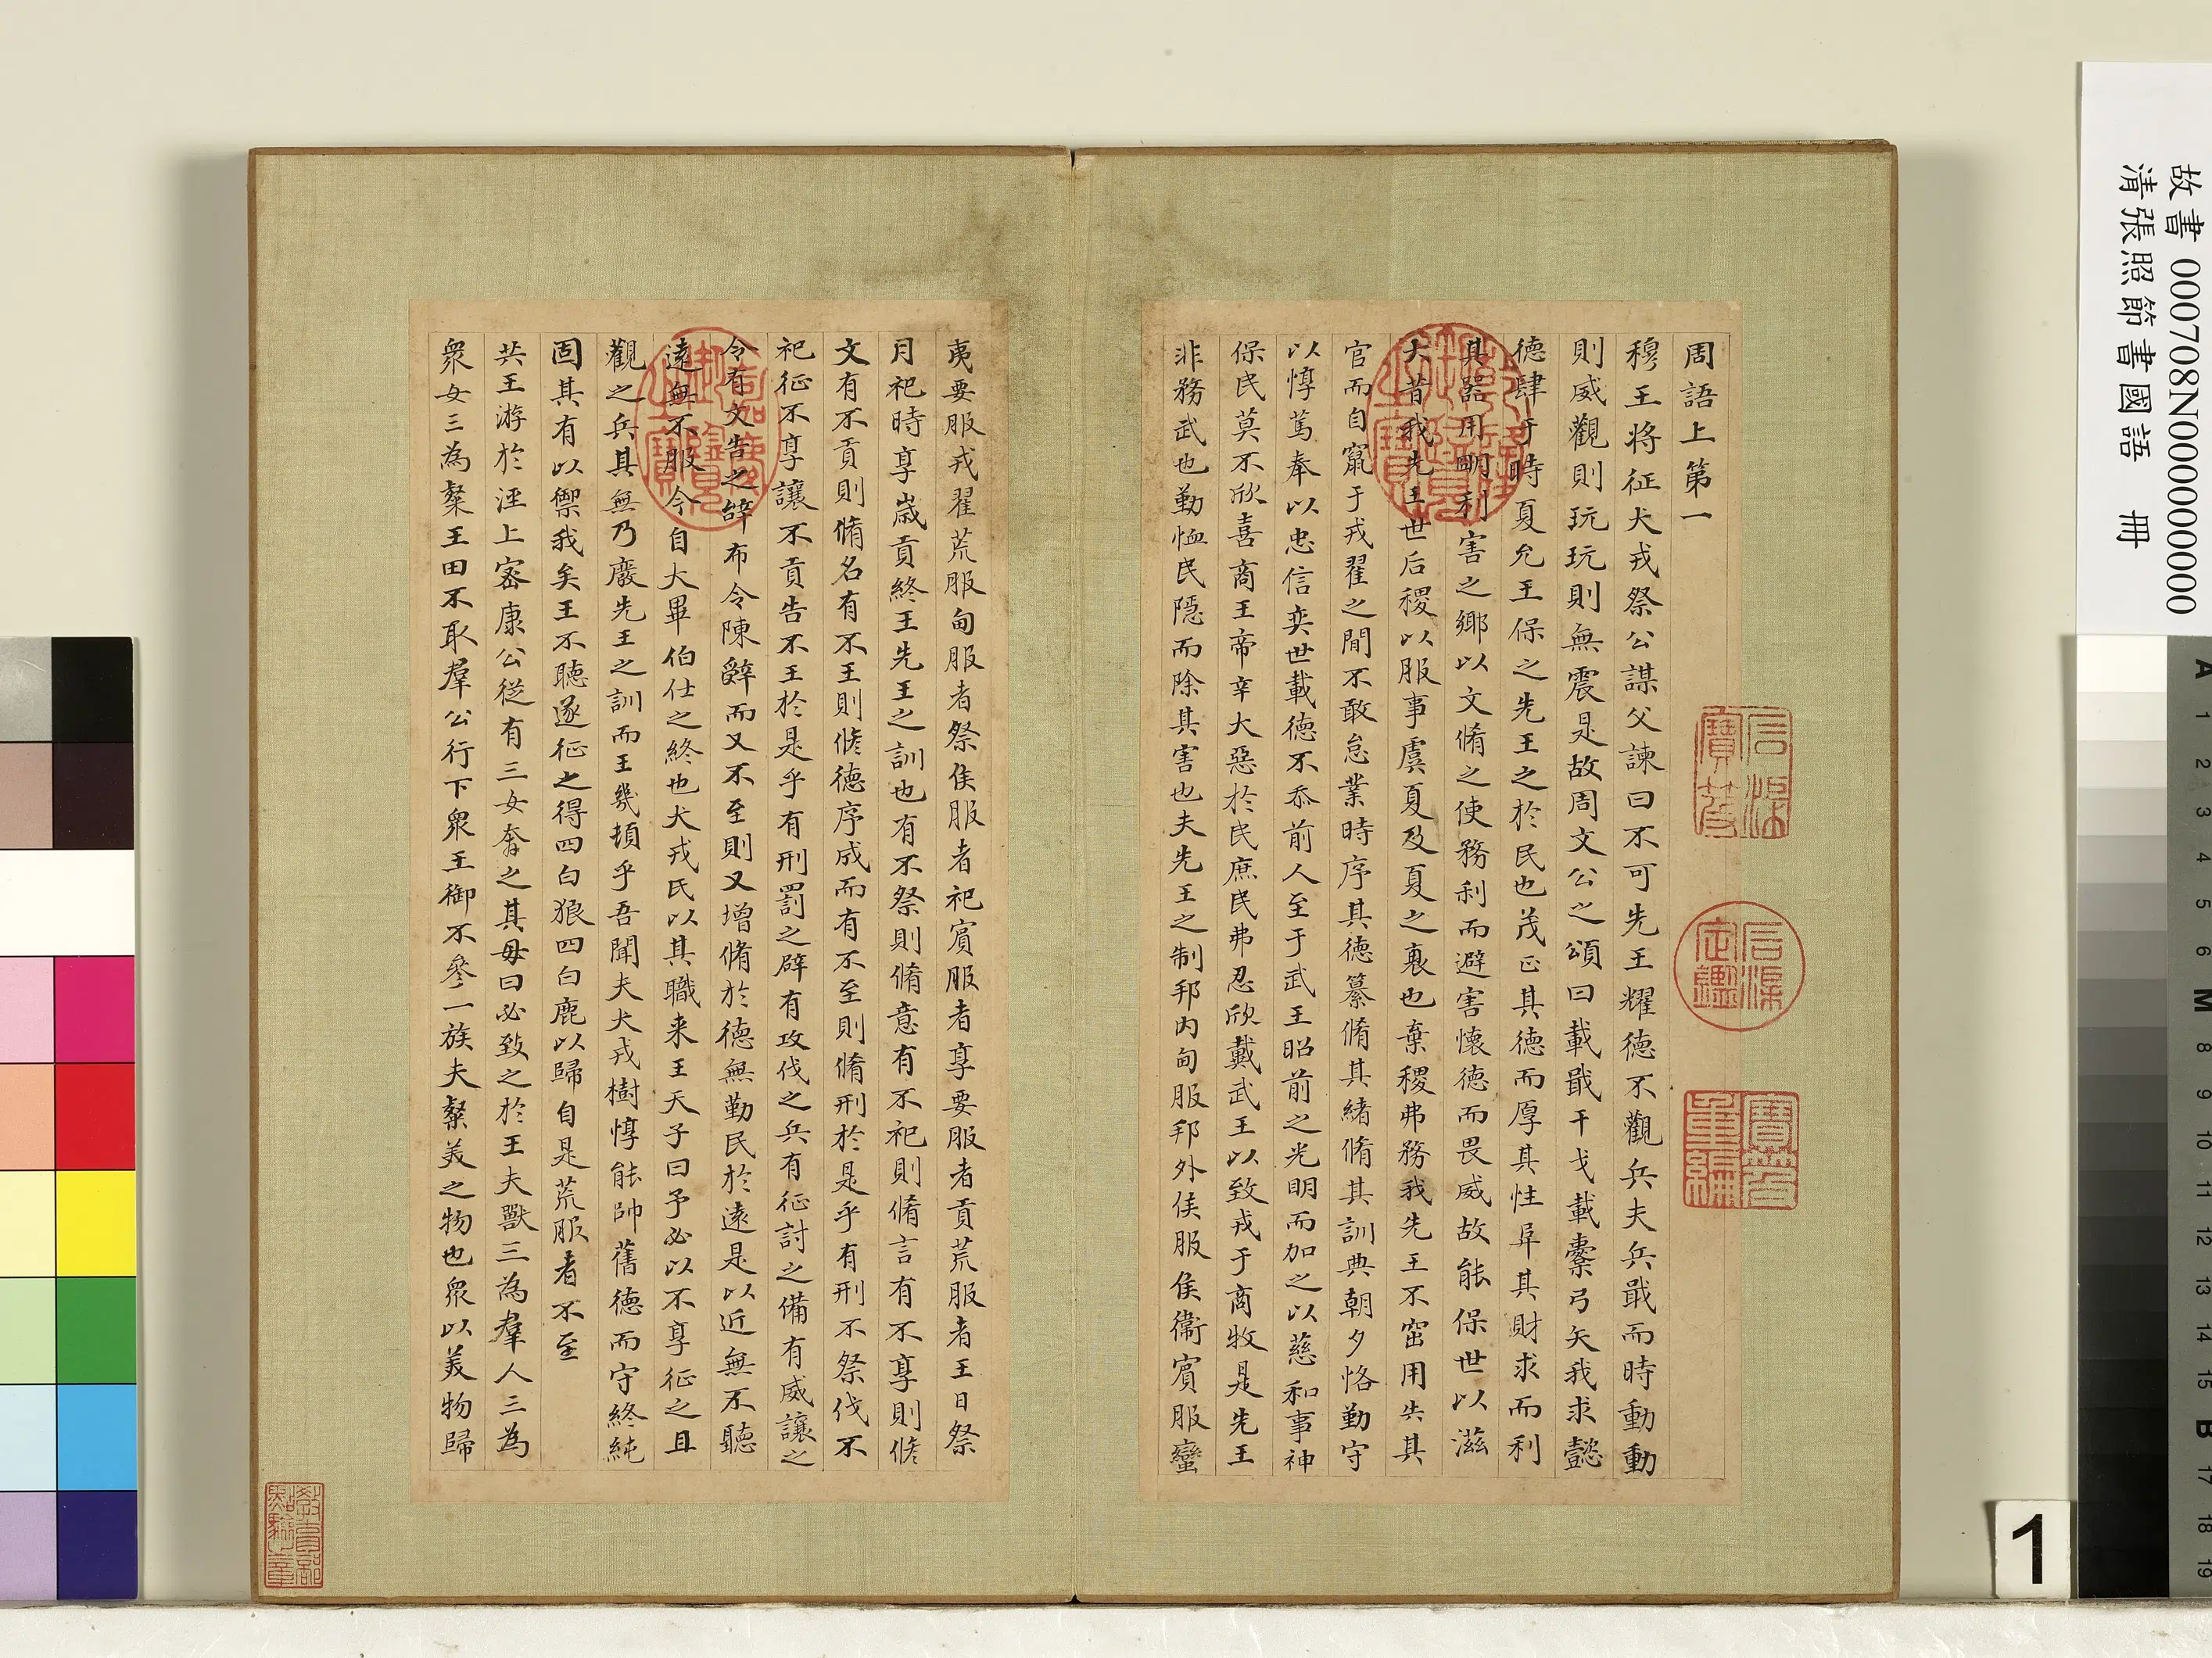 故書 000708N000000000
清張照節書國語 冊
周語上第一
穆王將征犬戎祭公謀父諫曰不可先王耀德不觀兵夫兵戢而時動動
則威觀則玩玩則無震是故周文公之頌曰載戢干戈載櫜弓矢我求懿
德肆于時夏允王保之先王之於民也茂正其德而厚其性阜其財求而利
其器用明利害之鄉以文脩之使務利而避害懷德而畏威故能保世以滋
大昔我先王世后稷以服事虞夏及夏之衰也棄稷弗務我先王不窋用失其
官而自竄于戎翟之間不敢怠業時序其德纂脩其緒脩其訓典朝夕恪勤守
以惇篤奉以忠信奕世載德不忝前人至于武王昭前之光明而加之以慈和事神
保民莫不欣喜商王帝辛大惡於民庶民弗忍欣戴武王以致戎于商牧是先王
非務武也勤恤民隱而除其害也夫先王之制邦內甸服邦外侯服侯衞賓服蠻
夷要服戎翟荒服甸服者祭侯服者祀賓服者享要服者貢荒服者王日祭
月祀時享歲貢終王先王之訓也有不祭則脩意有不祀則脩言有不享則脩
文有不貢則脩名有不王則脩德序成而有不至則脩刑於是乎有刑不祭伐不
祀征不享讓不貢告不王於是乎有刑罰之辟有攻伐之兵有征討之備有威讓之
令有文告之辭布令陳辭而又不至則又增脩於德無勤民於遠是以近無不聽
遠無不服今自大畢伯仕之終也犬戎氏以其職来王天子曰予必以不享征之且
觀之兵其無乃廢先王之訓而王幾頓乎吾聞夫犬戎樹惇能帥舊德而守終純
固其有以禦我矣王不聽遂征之得四白狼四白鹿以歸自是荒服者不至
共王游於涇上密康公從有三女奔之其母曰必致之於王夫獸三為羣人三為
衆女三為粲王田不取羣公行下衆王御不參一族夫粲美之物也衆以美物歸
石渠寶笈
石渠定鑑
寶笈重編
乾隆御覽之寶
嘉慶御覽之寶
教育部點驗之章
1